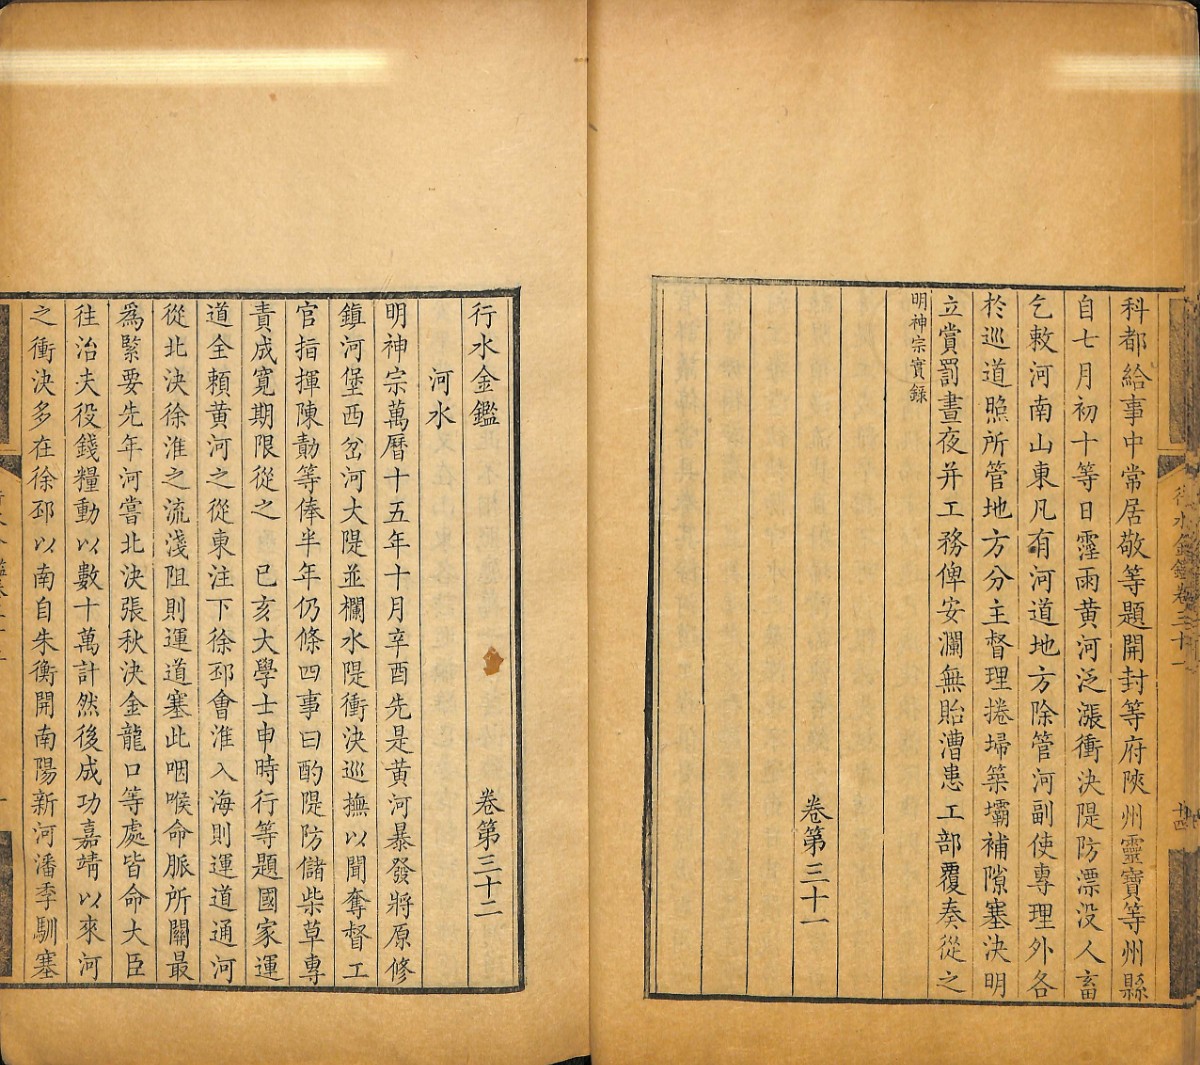 科都給事中常居敬等題開封等府陝州靈寶等州縣
自七月初十等日霪雨黄河泛漲衝決隄防漂没人畜
乞敕河南山東凡有河道地方除管河副使專理外各
於巡道照所管地方分主督理捲埽築壩補隙塞決明
立賞罰晝夜并工務俾安瀾無貽漕患工部覆奏從之
明神宗實錄
卷第三十一
行水金鑑卷三十一
十四
行水金鑑 卷第三十二
河水
明神宗萬曆十五年十月辛酉先是黄河暴發將原修
鎮河堡西岔河大隄並欄水隄衝決巡撫以聞奪督工
官指揮陳勣等俸半年仍條四事曰酌隄防儲柴草專
責成寬期限從之 已亥大學士申時行等題國家運
道全賴黄河之從東注下徐邳會淮入海則運道通河
從北決徐淮之流淺阻則運道塞此咽喉命脈所關最
爲緊要先年河嘗北決張秋決金龍口等處皆命大臣
往治夫役錢糧動以數十萬計然後成功嘉靖以來河
之衝決多在徐邳以南自朱衡開南陽新河潘季馴塞